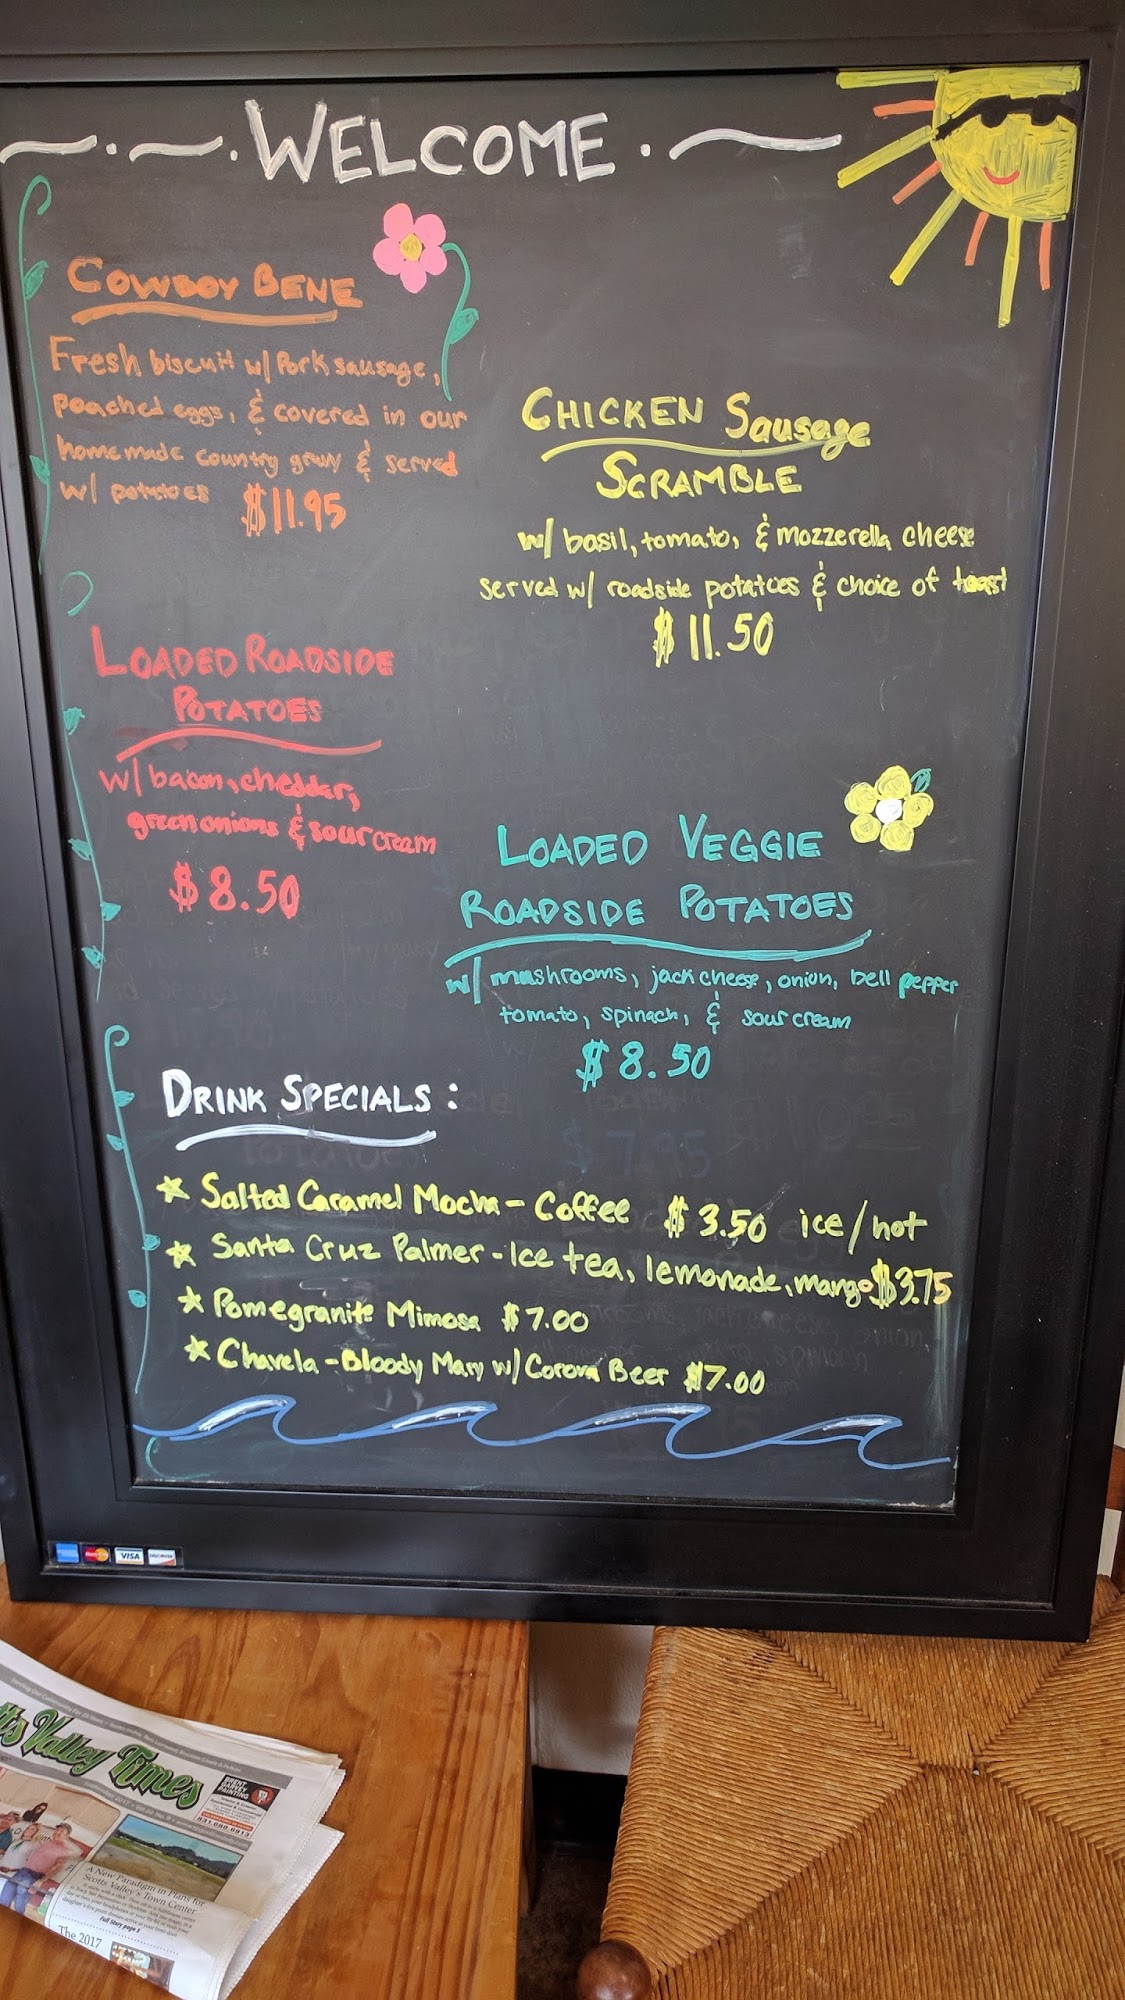 WELCOME
COWBOY BENE
Fresh biscuit w/ Pork sausage,
poached eggs, & covered in our
homemade country gravy & served
w/ potatoes $11.95
CHICKEN Sausage
SCRAMBLE
w/ basil, tomato, & mozzerella cheese
served w/ roadside potatoes & choice of toast
$11.50
LOADED ROADSIDE
POTATOES
w/ bacon, cheddar,
green onions & sour cream
$8.50
LOADED VEGGIE
ROADSIDE POTATOES
w/ mushrooms, jack cheese, onion, bell pepper
tomato, spinach, & sour cream
$8.50
DRINK SPECIALS:
Salted Caramel Mocha - Coffee $3.50 ice/hot
Santa Cruz Palmer - Ice tea, lemonade, mango $3.75
Pomegranite Mimosa $7.00
Chavela - Bloody Mary w/ Corona Beer $7.00
VISA
DISCOVER
Valley Times
831.688.6913
A New Paradigm in Plans for
Scotts Valley's Town Center
Full Story page 5
The 2017